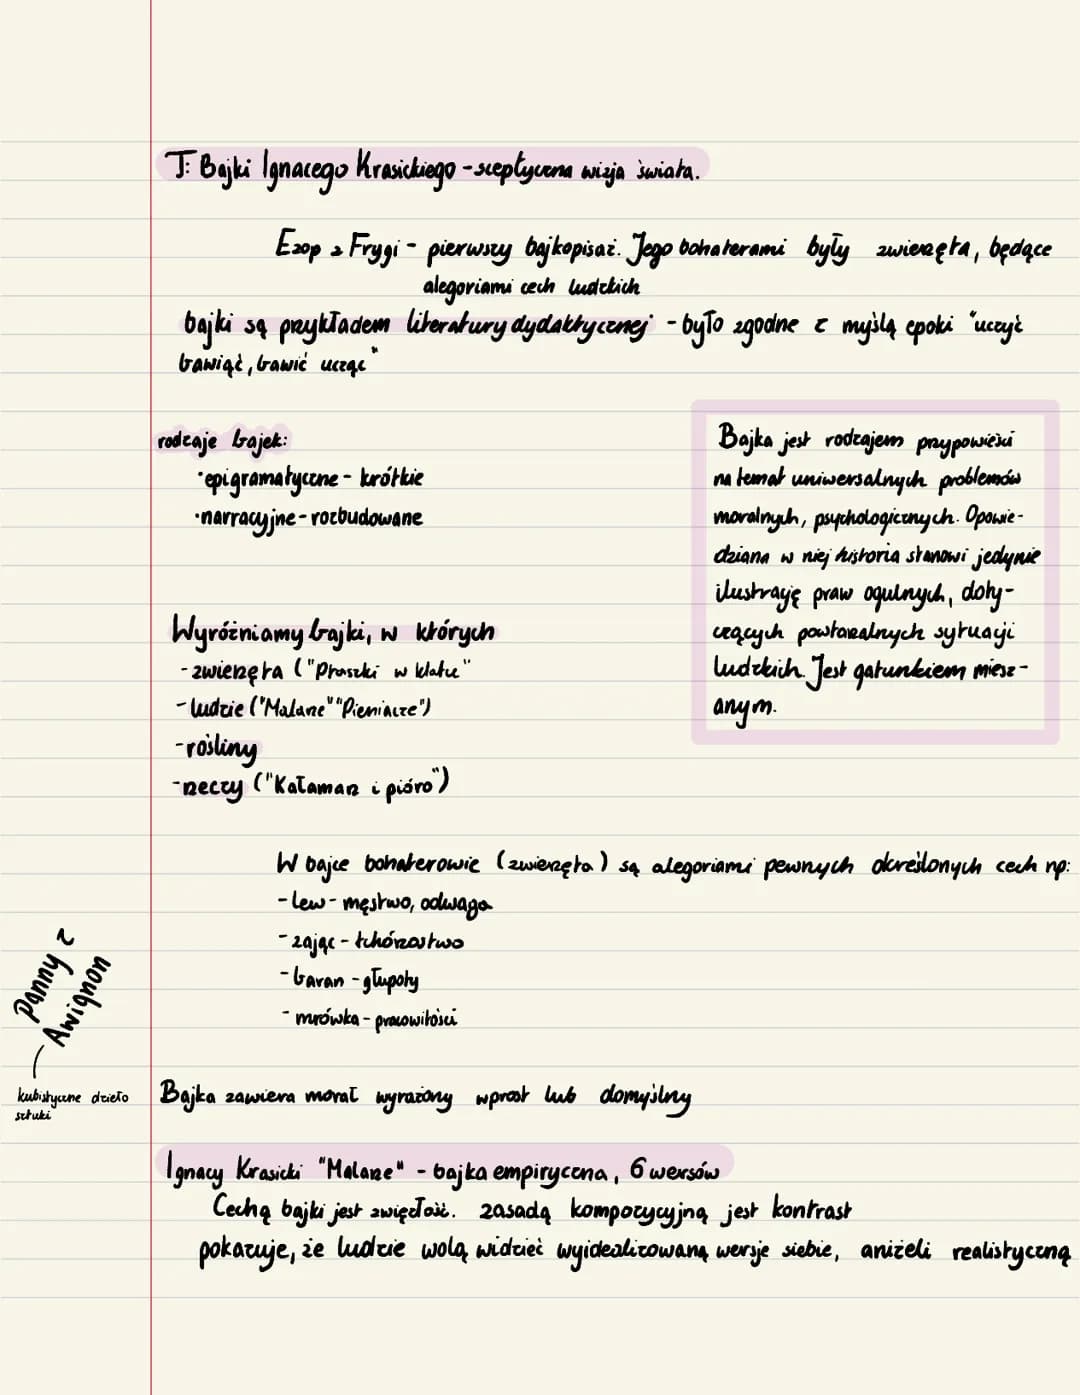 T: Bajki Ignacego Krasickiego - sceptyczna wizja świata.
Ezop z Frygi - pierwszy bajkopisaż. Jego bohaterami były zwierzęta, będące
alegoriami cech ludzkich
bajki są przykładem literatury dydaktycznej - było zgodne z myślą epoki "uczyć
bawiąc, bawić ucząc"
rodzaje bajek:
· epigramatyczne - krótkie
· narracyjne - rozbudowane
Bajka jest rodzajem przypowieści
na temat uniwersalnych problemów
moralnych, psychologicznych. Opowie-
dziana w niej historia stanowi jedynie
ilustrację praw ogulnych, doty-
czących powtarzalnych sytuacji
ludzkich. Jest gatunkiem miesz-
anym.
Wyróżniamy bajki, w których
- zwierzęta ("Ptaszki w klatce"
- ludzie ("Malarze" "Pieniacze")
- rośliny
- rzeczy ("Kałamarz i pióro")
W bajce bohaterowie (zwierzęta) są alegoriami pewnych określonych cech np:
- lew - męstwo, odwaga
- zając - tchórzostwo
- baran - głupoty
- mrówka - pracowitości
Panny z
Awignon
kubistyczne dzieło
sztuki
Bajka zawiera morał wyrażony wprost lub domyślny
Ignacy Krasicki "Malarze" - bajka empiryczna, 6 wersów
Cechą bajki jest zwięzłość. zasadą kompozycyjną jest kontrast
pokazuje, że ludzie wolą widzieć wyidealizowaną wersje siebie, aniżeli realistyczną